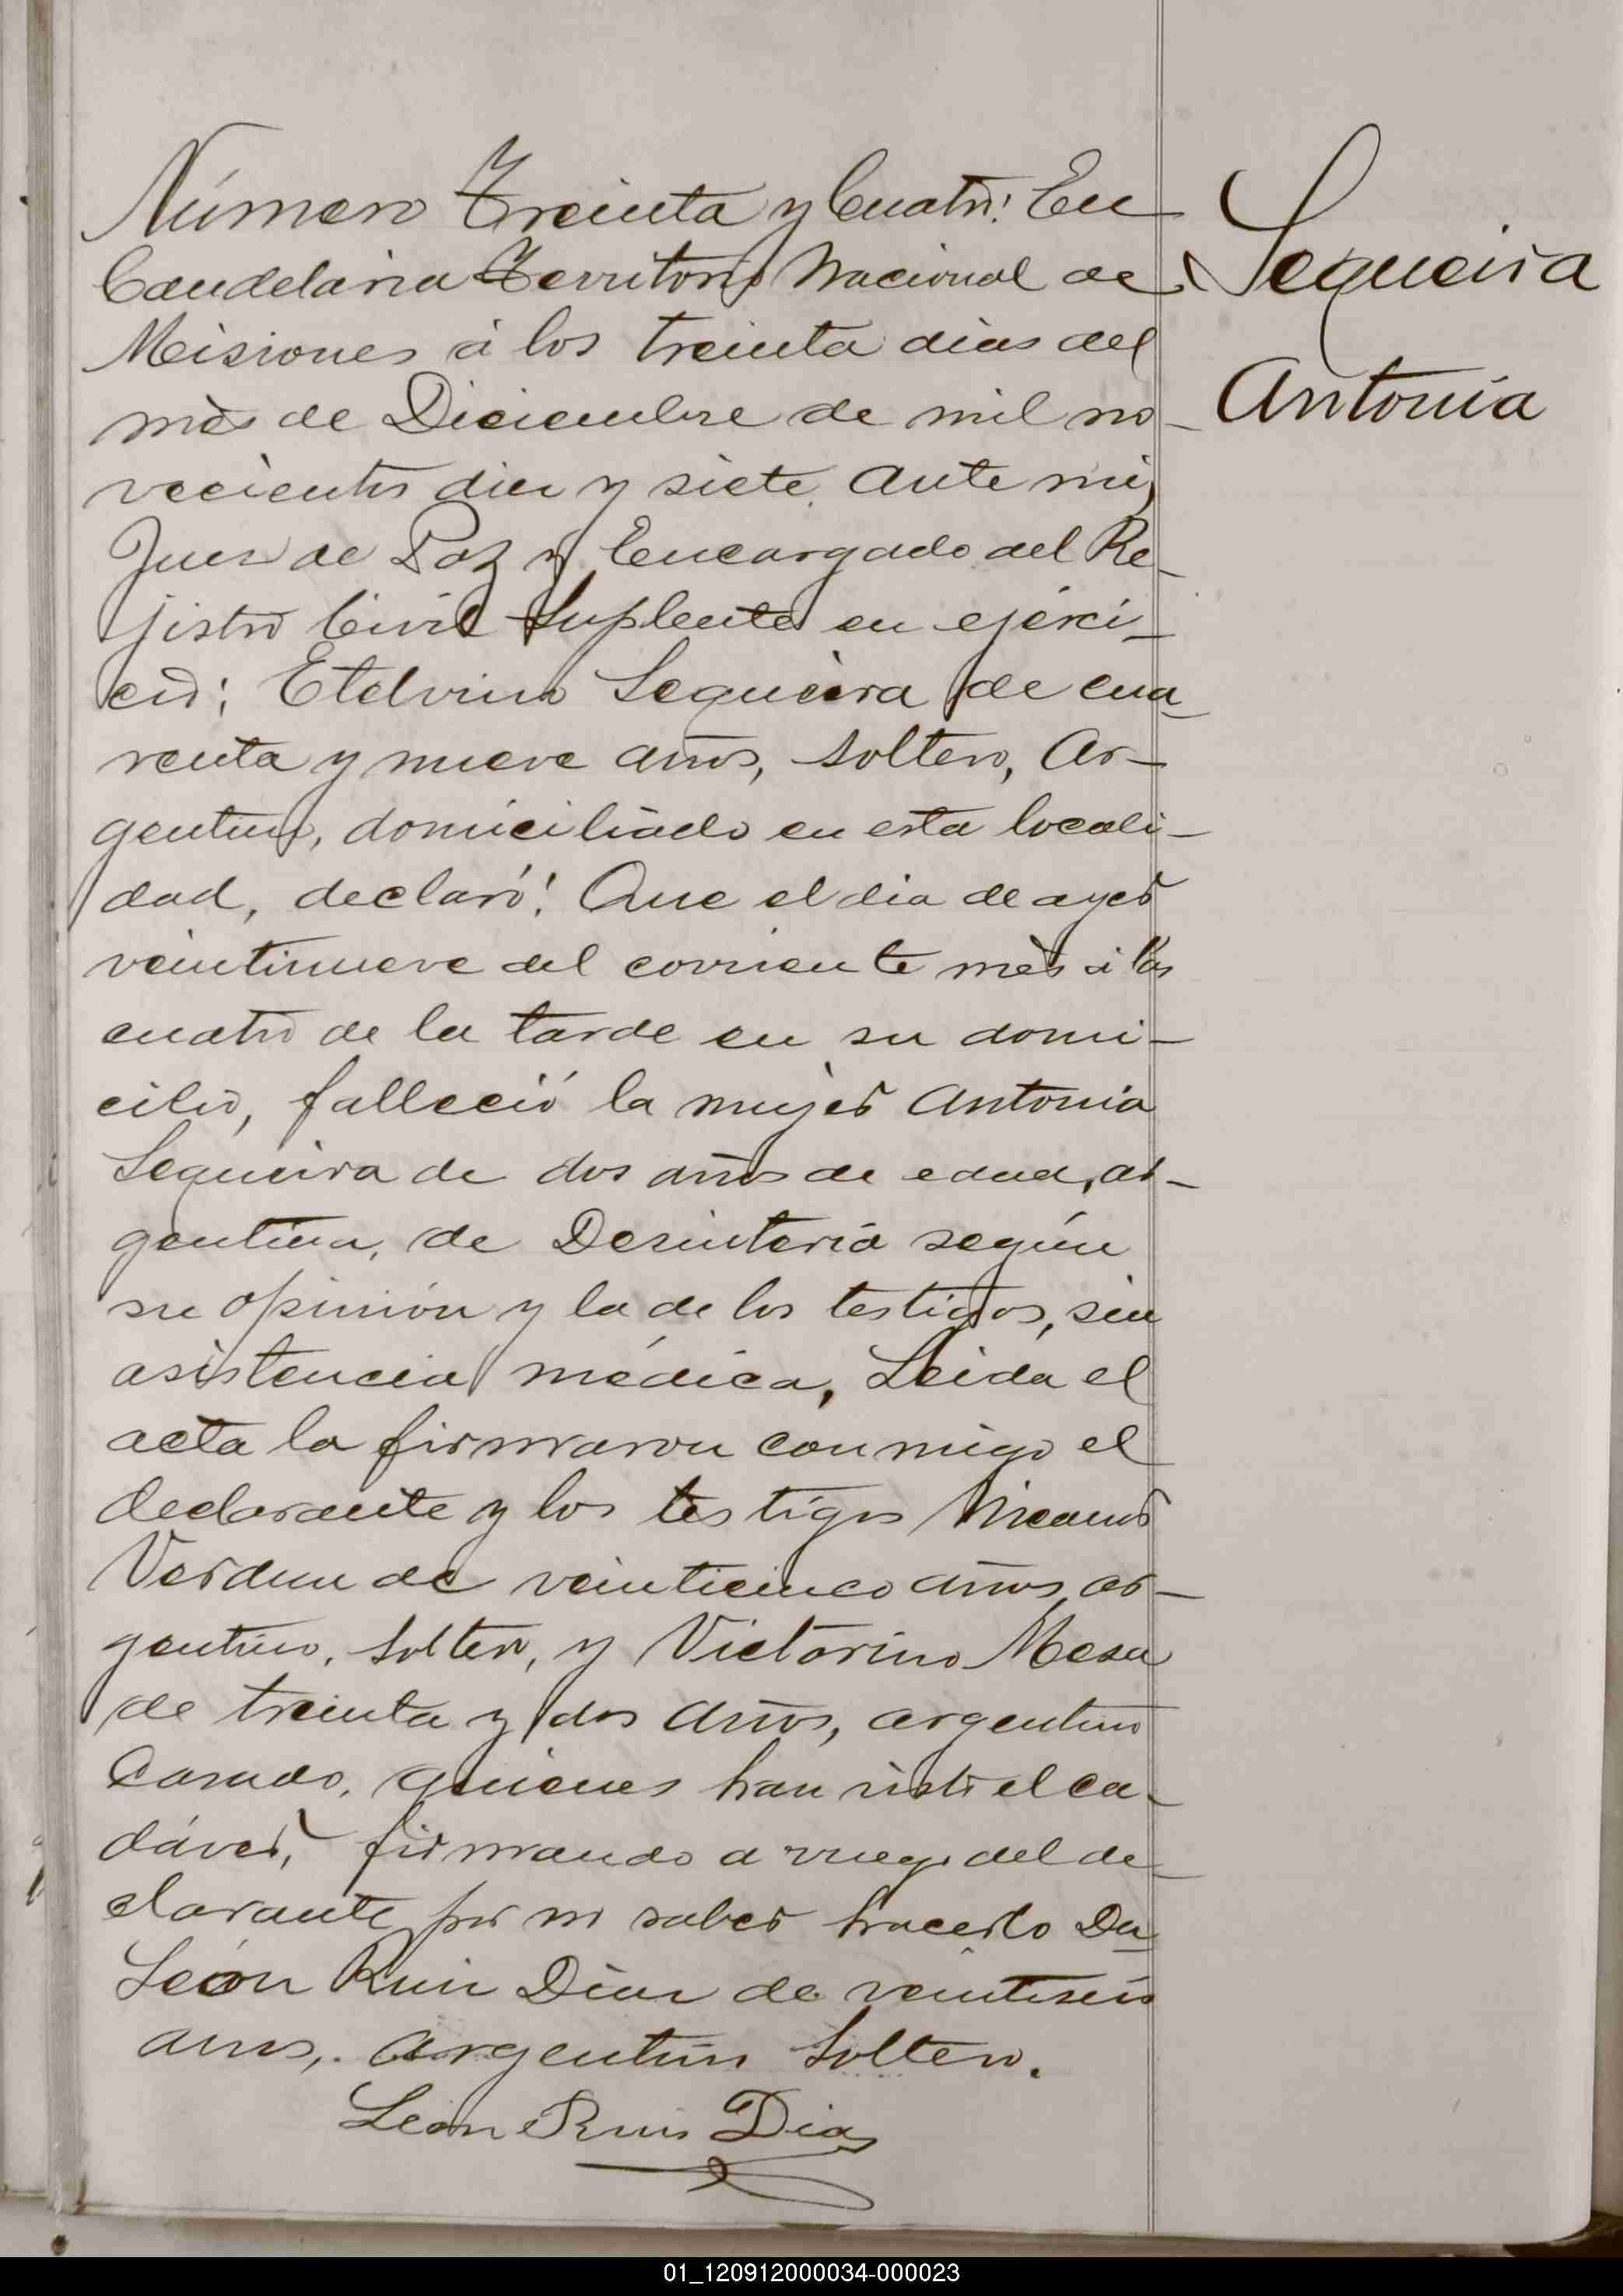 Número Treinta y Cuatro: En
Candelaria Territorio Nacional de
Misiones á los treinta dias del
mès de Diciembre de mil no-
vecientos diez y siete, ante mi,
Juez de Paz y Encargado del Re-
jistro Civil Suplente en ejérci-
cio; Etelvino Sequeira de cua-
renta y nueve años, soltero, Ar-
gentino, domiciliado en esta locali-
dad, declaró: Que el dia de ayer
veintinueve del corriente mès á las
cuatro de la tarde en su domi-
cilio, falleció la mujer Antonia
Sequeira de dos años de edad, ar-
gentina, de Desinteria según
su opinión y la de los testigos, sin
asistencia médica, Leida el
acta la firmaron conmigo el
declarante y los testigos Nicanor
Verdun de veinticinco años, ar-
gentino, soltero, y Victorino Mesa
de treinta y dos años, argentino
Casado, quienes han visto el ca-
dáver, firmando a ruego del de-
clarante por no saber hacerlo Dn
León Ruiz Diaz de veintiseis
años, argentino soltero.
León Ruis Diaz
Sequeira
Antonia
01_120912000034-000023